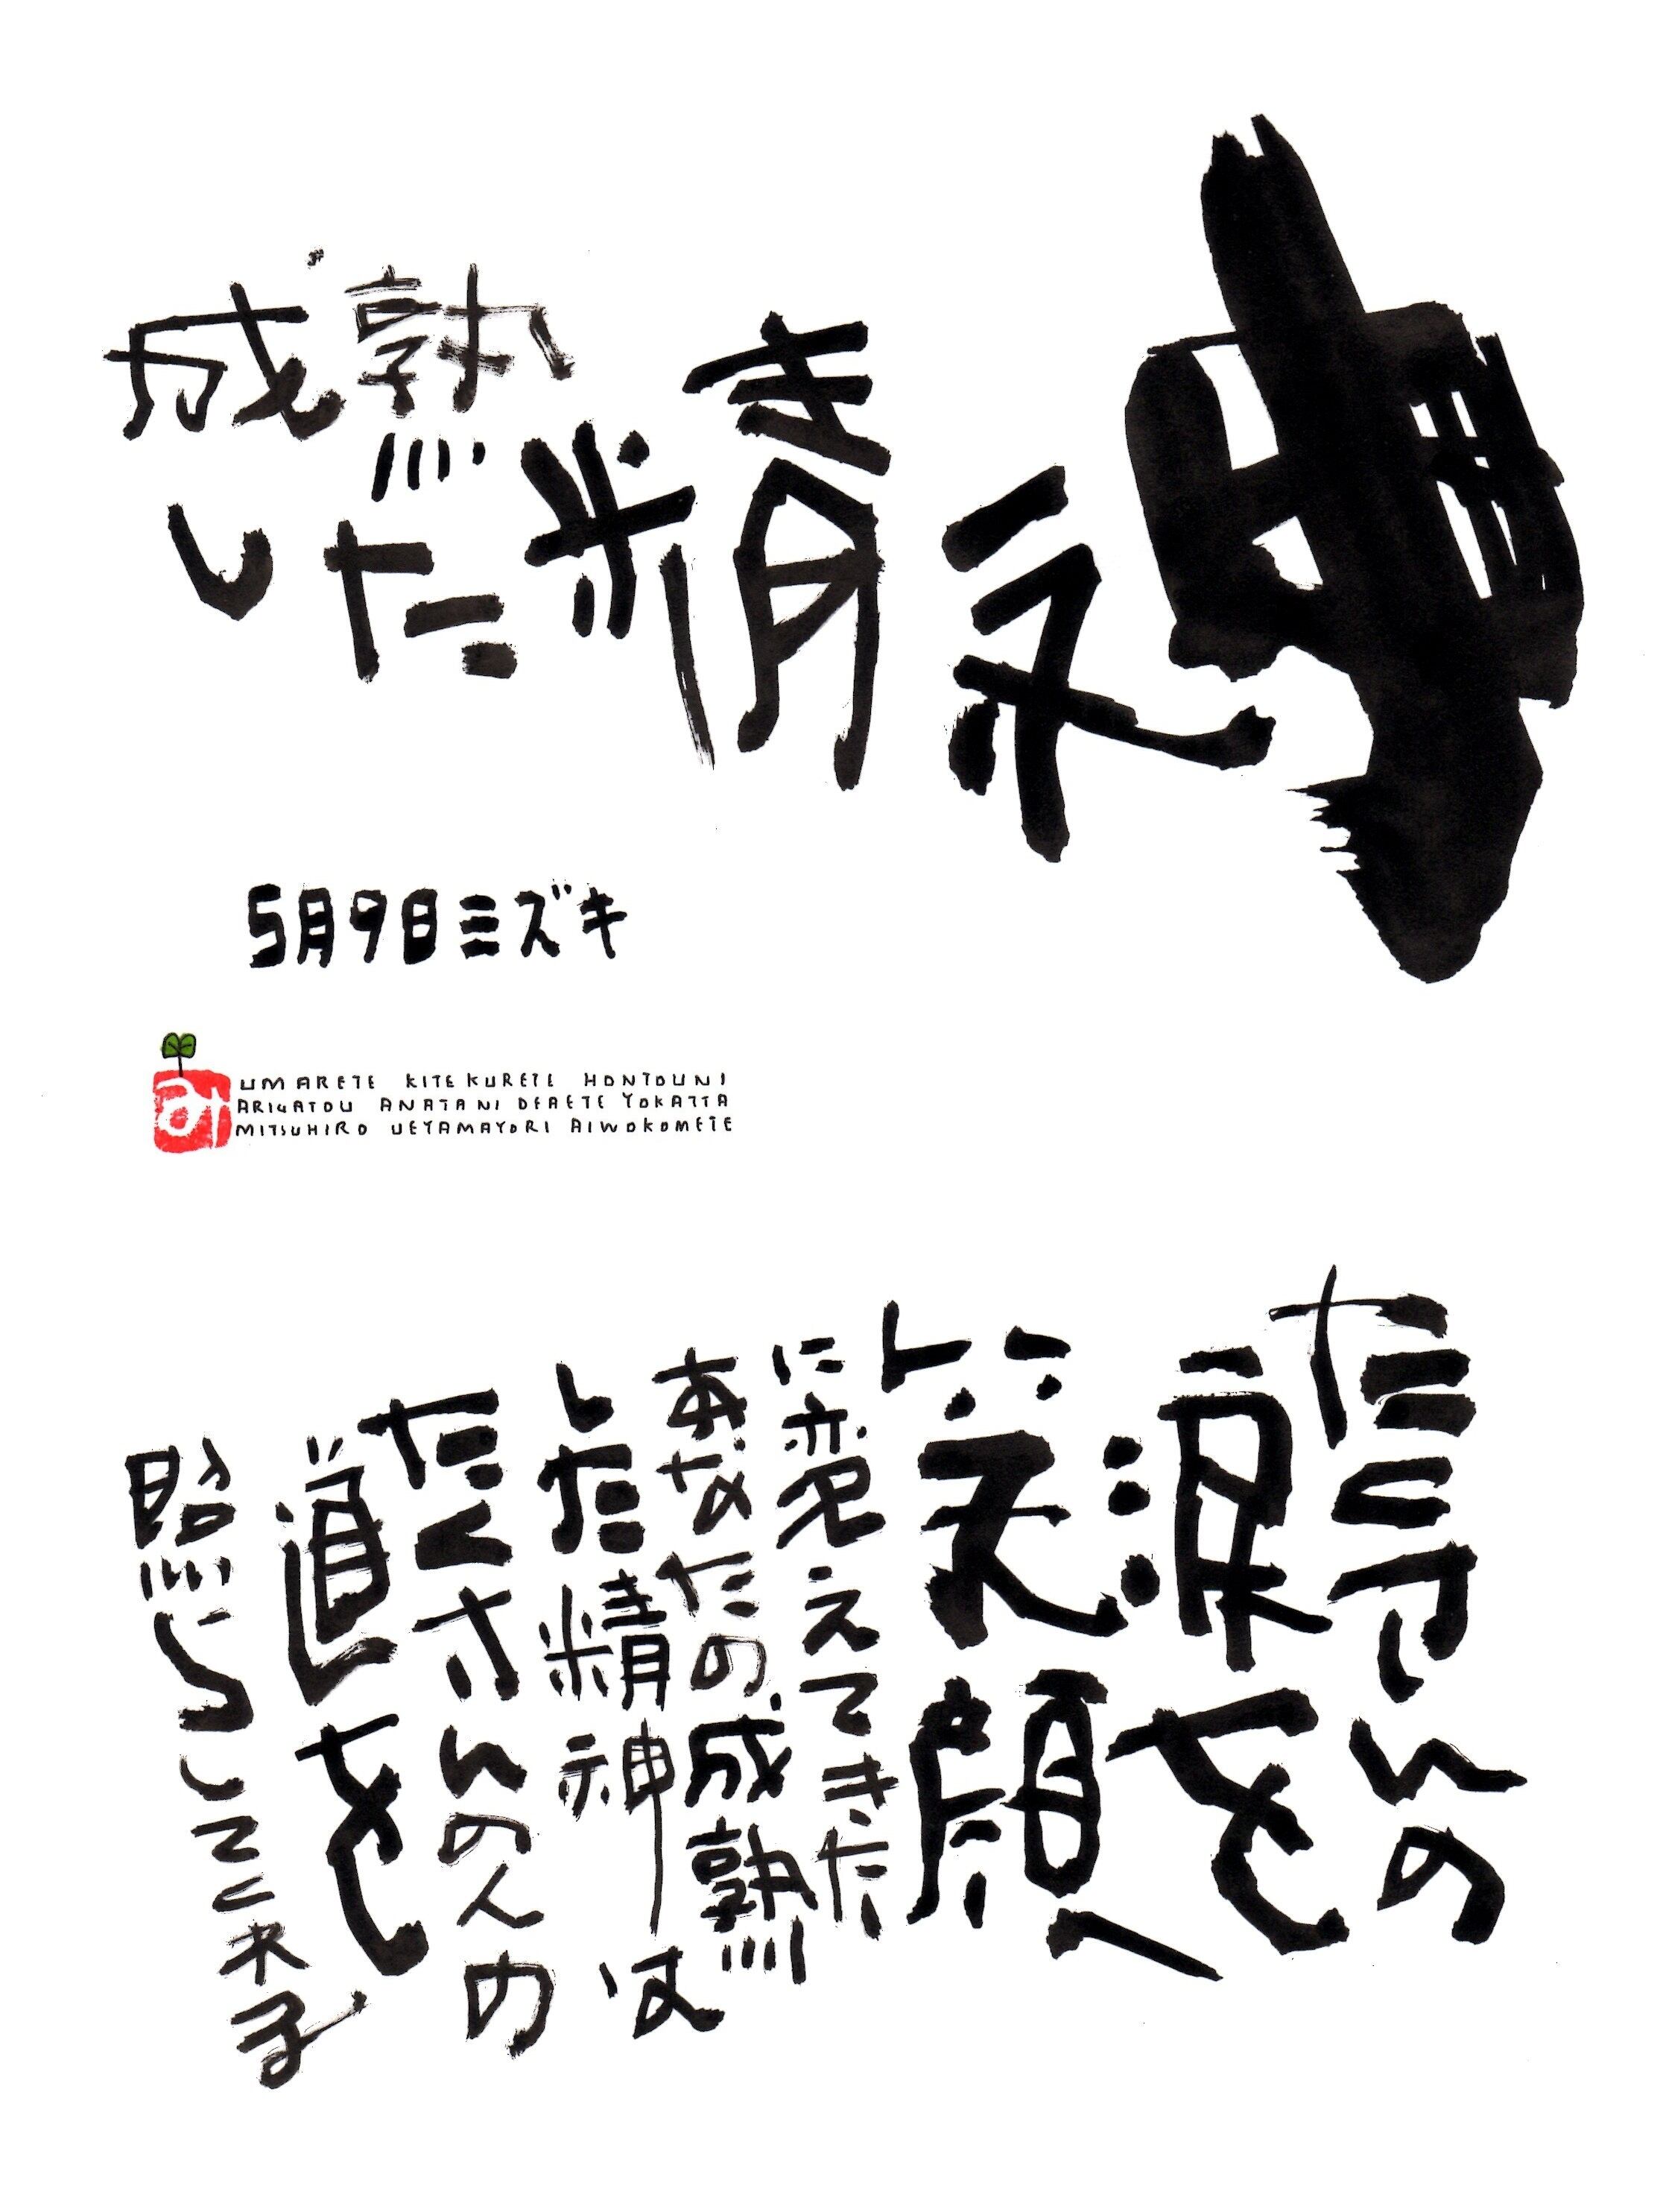 成熟した精神
5月9日ミズキ
UMARETE KITEKURETE HONTOUNI
ARIGATOU ANATANI DEAETE YOKATTA
MITSUHIRO UEYAMAYORI AIWOKOMETE
たくさんの
涙を
笑顔
に変えてきた
あなたの成熟
した精神は
たくさんの人の
道を
照らしてくれる